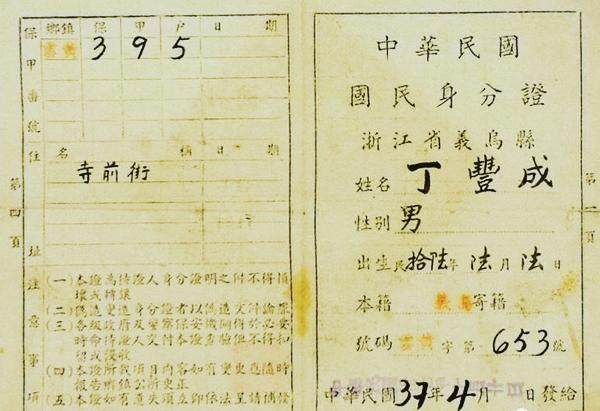 中華民國
國民身分證
浙江省義烏縣
姓名 丁豐成
性別 男
出生 民拾陆年 陆月 陆日
本籍 義烏 寄籍
號碼 雲黃 字第 653 號
中華民國 37年 4月 日發給
第一頁
保甲番號
鄉鎮 保 甲 戶 日 期
雲黃 3 9 5
住址
名 稱 日 期
寺前街
注意事項
(一)本證為持證人身分證明之件不得損
壞或轉讓
(二)偽造變造身分證者以偽造文件論罪
(三)各級政府及警察保安機關於必要
時命持證人交付本證查驗但不得扣
留或沒收
(四)本證所載項目內容如有變更應隨時
報告鄉鎮公所更正
(五)本證如有遺失立即依法呈請補發
第四頁